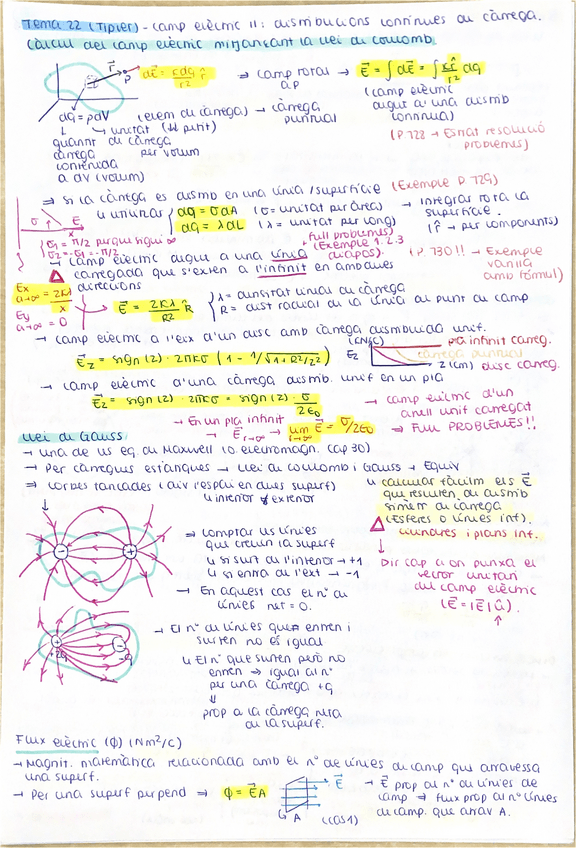 Tema 22 (Tipler) - camp elèctric II: distribucions contínues de càrrega.
Càlcul del camp elèctric mitjançant la llei de coulomb
dE = k dq / r² r̂ ⇒ camp total a P → E = ∫dE = ∫ k r̂ / r² dq
(camp elèctric
degut a una distrib
contínua)
dq = ρdV (elem de càrrega) → càrrega puntual
↳ unitat (↓↓ petit)
quantit de càrrega
càrrega per volum
continguda
a dV (volum)
(P. 728 → Estrat resolució
problemes)
⇒ Si la càrrega es distrib en una línia / superfície (Exemple P. 729)
↳ utilitzar dq = σdA (σ = unitat per àrea) → integrar tota la
dq = λdL (λ = unitat per long) superfície.
(r̂ → per components)
σ E
x
θ1 = π/2 perquè sigui ∞
θ2 = -π/2
+ Full problemes!
(Exemple 1. 2. 3
d'apos)
→ camp elèctric degut a una línia (P. 730!! → Exemple
carregada que s'exten a l'infinit en ambdues
direccions
Ex a→∞ = 2kλ / x
Ey a→∞ = 0
E = 2kλ / R² R
λ = densitat lineal de càrrega
R = dist radial de la línia al punt de camp
→ camp elèctric a l'eix d'un disc amb càrrega distribuïda unif.
Ez = sign (z) · 2πkσ (1 - 1/√1+R²/z²)
(kN/C)
Ez
pla infinit carreg.
càrrega puntual
z (cm) disc carreg.
→ camp elèctric d'una càrrega distrib. unif en un pla
Ez = sign (z) · 2πkσ = sign (z) · σ / 2ε0
→ camp elèctric d'un
anell unif carregat
⇒ FULL PROBLEMES!!
→ En un pla infinit
→ E r→∞ → lim r→∞ E = σ/2ε0
Llei de Gauss
→ una de les eq. de Maxwell (o. electromagn. cap 30)
→ Per càrregues estàtiques → Llei de coulomb i Gauss → Equiv
⇒ Corbes tancades (divideix l'espai en dues superf)
↳ interior i exterior
↳ calcular fàcilm els E
que resulten de distrib
simètr de càrrega
(esferes o línies inf).
cilindres i plans inf.
⇒ comptar les línies
que creuen la superf
↳ si surt de l'interior → +1
↳ si entra de l'ext → -1
→ En aquest cas el nº de
línies net = 0.
Dir cap a on punxa el
vector unitari
del camp elèctric
(E = |E| û).
+2q
-q
→ El nº de línies que entren i
surten no és igual
↳ El nº que surten però no
entren ⇒ igual al nº
per una càrrega +q
⇓
prop a la càrrega neta
de la superf.
Flux elèctric (ϕ) (Nm²/C)
→ Magnit. matemàtica relacionada amb el nº de línies de camp que travessa
una superf.
→ Per una superf perpend ⇒ ϕ = EA
E
A
(cas 1)
→ E prop al nº de línies de
camp ⇒ flux prop al nº línies
de camp. que atrav A.